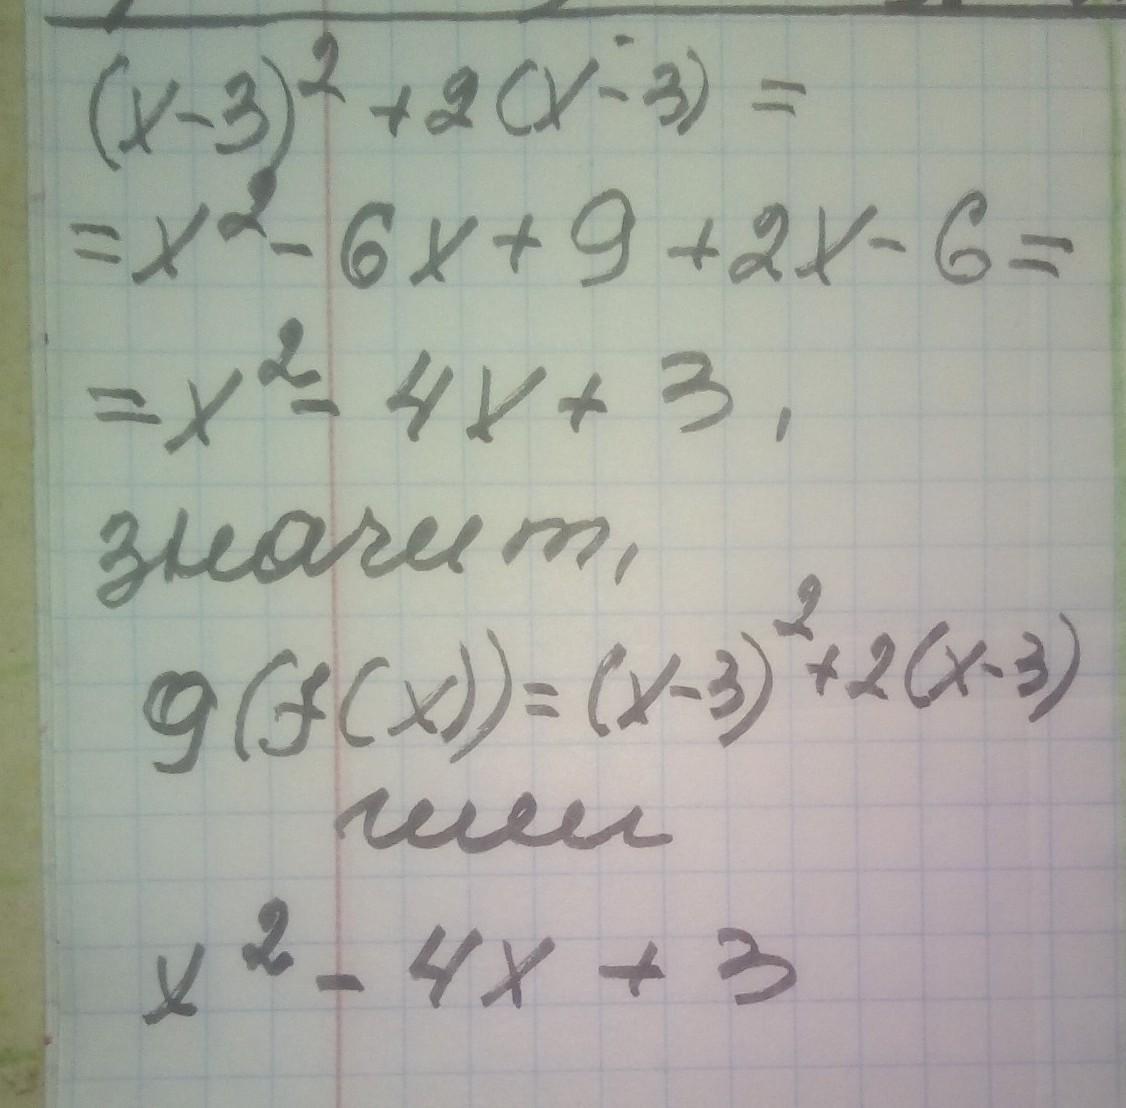 (x-3)² + 2(x-3) =
= x² - 6x + 9 + 2x - 6 =
= x² - 4x + 3,
значит,
g(f(x)) = (x-3)² + 2(x-3)
или
x² - 4x + 3